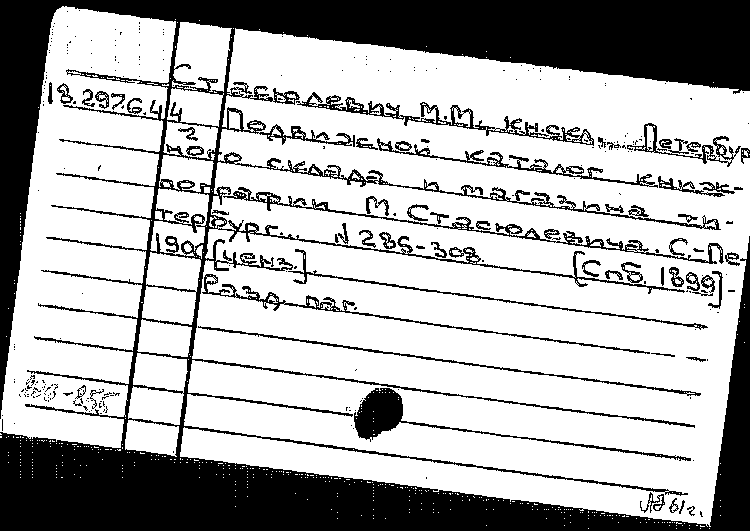 Стасюлевич, М.М., кн.скл., Петербур
18.297.6.44 Подвижной каталог книж-
-2 ного склада и магазина ти-
пографии М. Стасюлевича. С.-Пе-
тербург... N 286-308. [Спб, 1899]-
1900 [ценз.].
Разд. паг.
61 г.